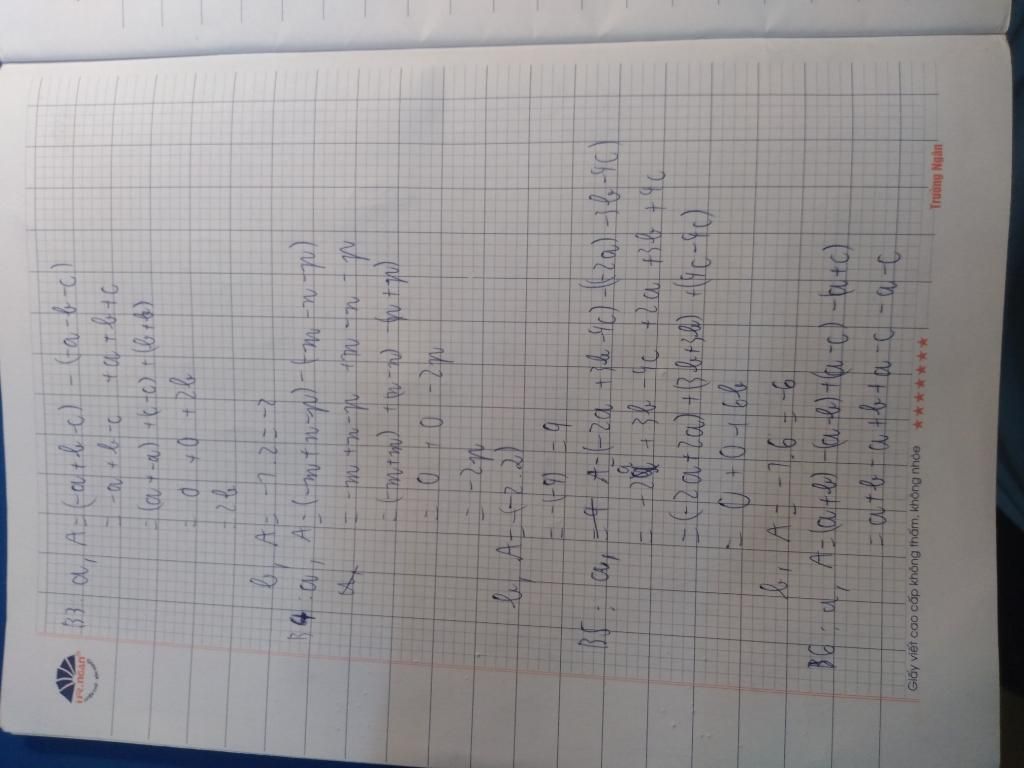 TPT.NGAN
B3: a, A = (-a+b-c) - (-a-b-c)
= -a+b-c +a+b+c
= (a+-a) + (c-c) + (b+b)
= 0 + 0 + 2b
= 2b
b, A = -1.2 = -2
B4 a, A = (-m+n-p) - (-m-n-p)
= (-m+m) + (n-n) - (p+p)
= 0 + 0 - 2p
= -2p
b, A = -(-2.2)
B5: a, A = (-2a+3b-4c) - (-2a-3b-4c)
+3b-4c+2a+3b+4c
= (-2a+2a) + (3b+3b) + (4c-4c)
= 0 + 0 + 6b
b, A = -1.6 = -6
B6: a, A = (a+b) - (a-b) + (a-c) - (a+c)
= a+b-a+b+a-c-a-c
Giấy viết cao cấp không thấm, không nhòe
★★★★★★★★
Trường Ngân